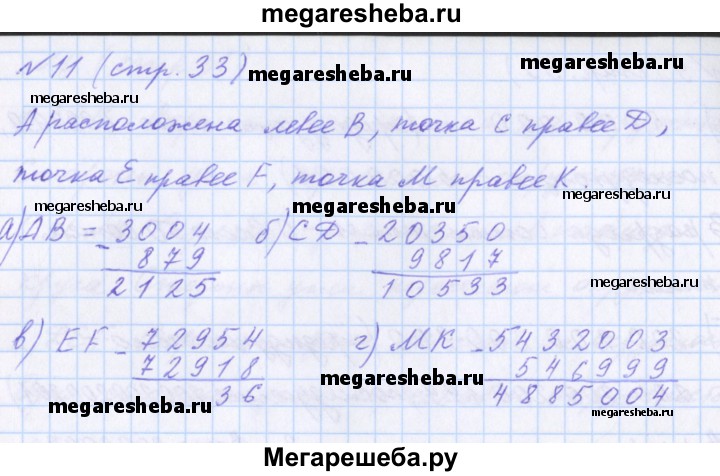 megaresheba.ru
№11 (стр. 33) megaresheba.ru megaresheba.ru
megaresheba.ru
А расположена левее В, точка С правее D,
точка Е правее F, точка М правее К.
megaresheba.ru megaresheba.ru
а) АВ = - 3004 б) СD - 20350
879 9817 megaresheba.ru
2125 10533
в) EF - 72954 г) МК - 5432003
72918 546999
megaresheba.ru
36 4885004
megaresheba.ru megaresheba.ru
Мегарешеба.ру